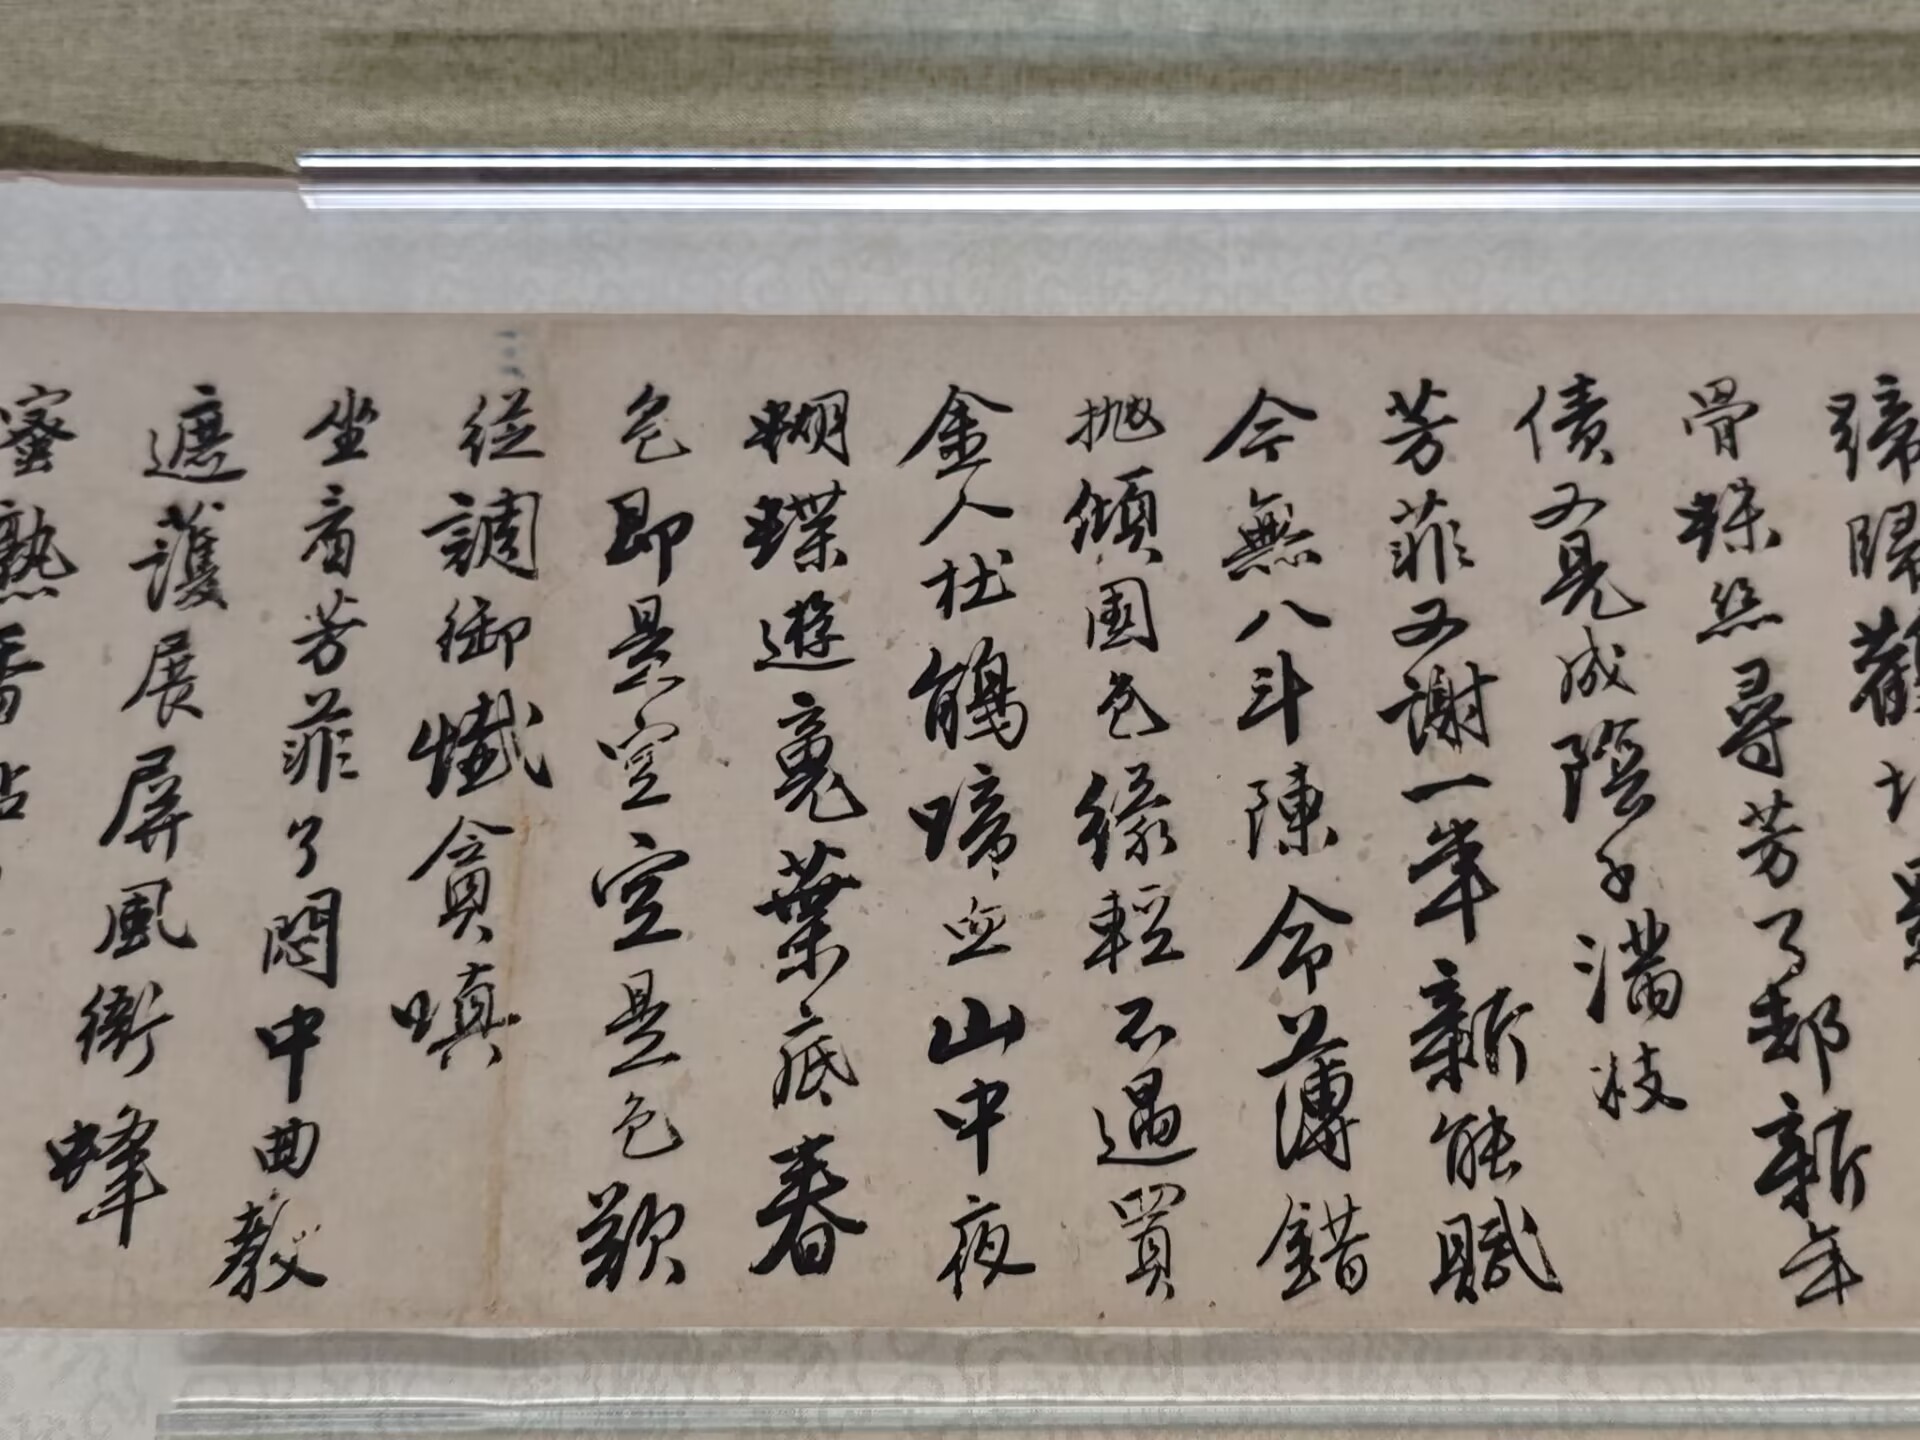 歸
骨蛛絲尋芳了卻新年
債又見成陰子滿枝
芳菲又謝一年新能賦
今無八斗陳命薄錯
拋傾國色緣輕不遇買
金人杜鵑啼血山中夜
蝴蝶遊魂葉底春
色即是空空是色
從調御懺貪嗔
坐看芳菲了悶中曲教
遮護展屏風衙蜂
蜜熟香